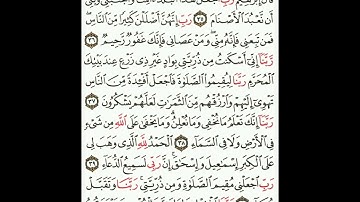 أَن نَّعْبُدَ ٱلْأَصْنَامَ ٣٥ رَبِّ إِنَّهُنَّ أَضْلَلْنَ كَثِيرًا مِّنَ ٱلنَّاسِ ۖ
فَمَن تَبِعَنِى فَإِنَّهُۥ مِنِّى ۖ وَمَنْ عَصَانِى فَإِنَّكَ غَفُورٌ رَّحِيمٌ ٣٦
رَّبَّنَآ إِنِّىٓ أَسْكَنتُ مِن ذُرِّيَّتِى بِوَادٍ غَيْرِ ذِى زَرْعٍ عِندَ بَيْتِكَ
ٱلْمُحَرَّمِ رَبَّنَا لِيُقِيمُوا۟ ٱلصَّلَوٰةَ فَٱجْعَلْ أَفْـِٔدَةً مِّنَ ٱلنَّاسِ
تَهْوِىٓ إِلَيْهِمْ وَٱرْزُقْهُم مِّنَ ٱلثَّمَرَٰتِ لَعَلَّهُمْ يَشْكُرُونَ ٣٧
رَبَّنَآ إِنَّكَ تَعْلَمُ مَا نُخْفِى وَمَا نُعْلِنُ ۗ وَمَا يَخْفَىٰ عَلَى ٱللَّهِ مِن شَىْءٍ
فِى ٱلْأَرْضِ وَلَا فِى ٱلسَّمَآءِ ٣٨ ٱلْحَمْدُ لِلَّهِ ٱلَّذِى وَهَبَ لِى
عَلَى ٱلْكِبَرِ إِسْمَٰعِيلَ وَإِسْحَٰقَ ۚ إِنَّ رَبِّى لَسَمِيعُ ٱلدُّعَآءِ ٣٩
رَبِّ ٱجْعَلْنِى مُقِيمَ ٱلصَّلَوٰةِ وَمِن ذُرِّيَّتِى ۚ رَبَّنَا وَتَقَبَّلْ